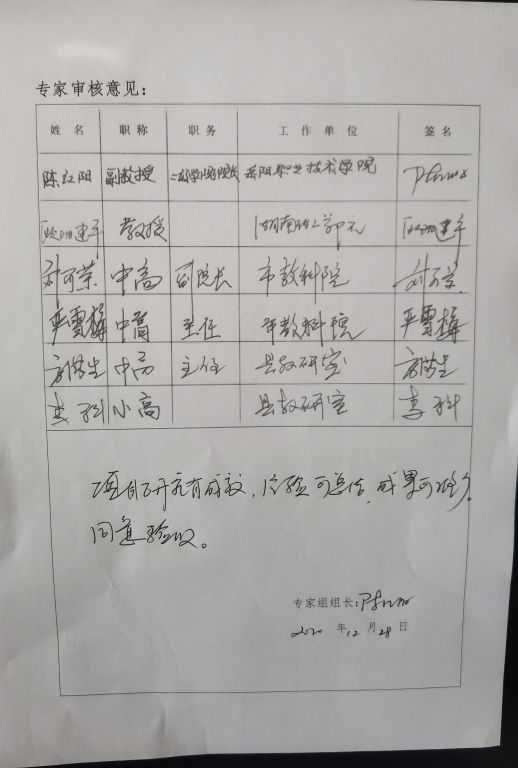 专家审核意见：
姓名 职称 职务 工作单位 签名
陈红阳 副教授 岳阳职业技术学院
欧阳建平 教授 欧阳建平
刘可荣 中高 副院长 市教科院 刘可荣
严雪梅 中高 主任 市教科院 严雪梅
中高 主任 县教研室
李科 小高 县教研室 李科
项目研究有成效，经验可总结，成果可推广。
同意验收。
专家组组长：
2020年12月28日